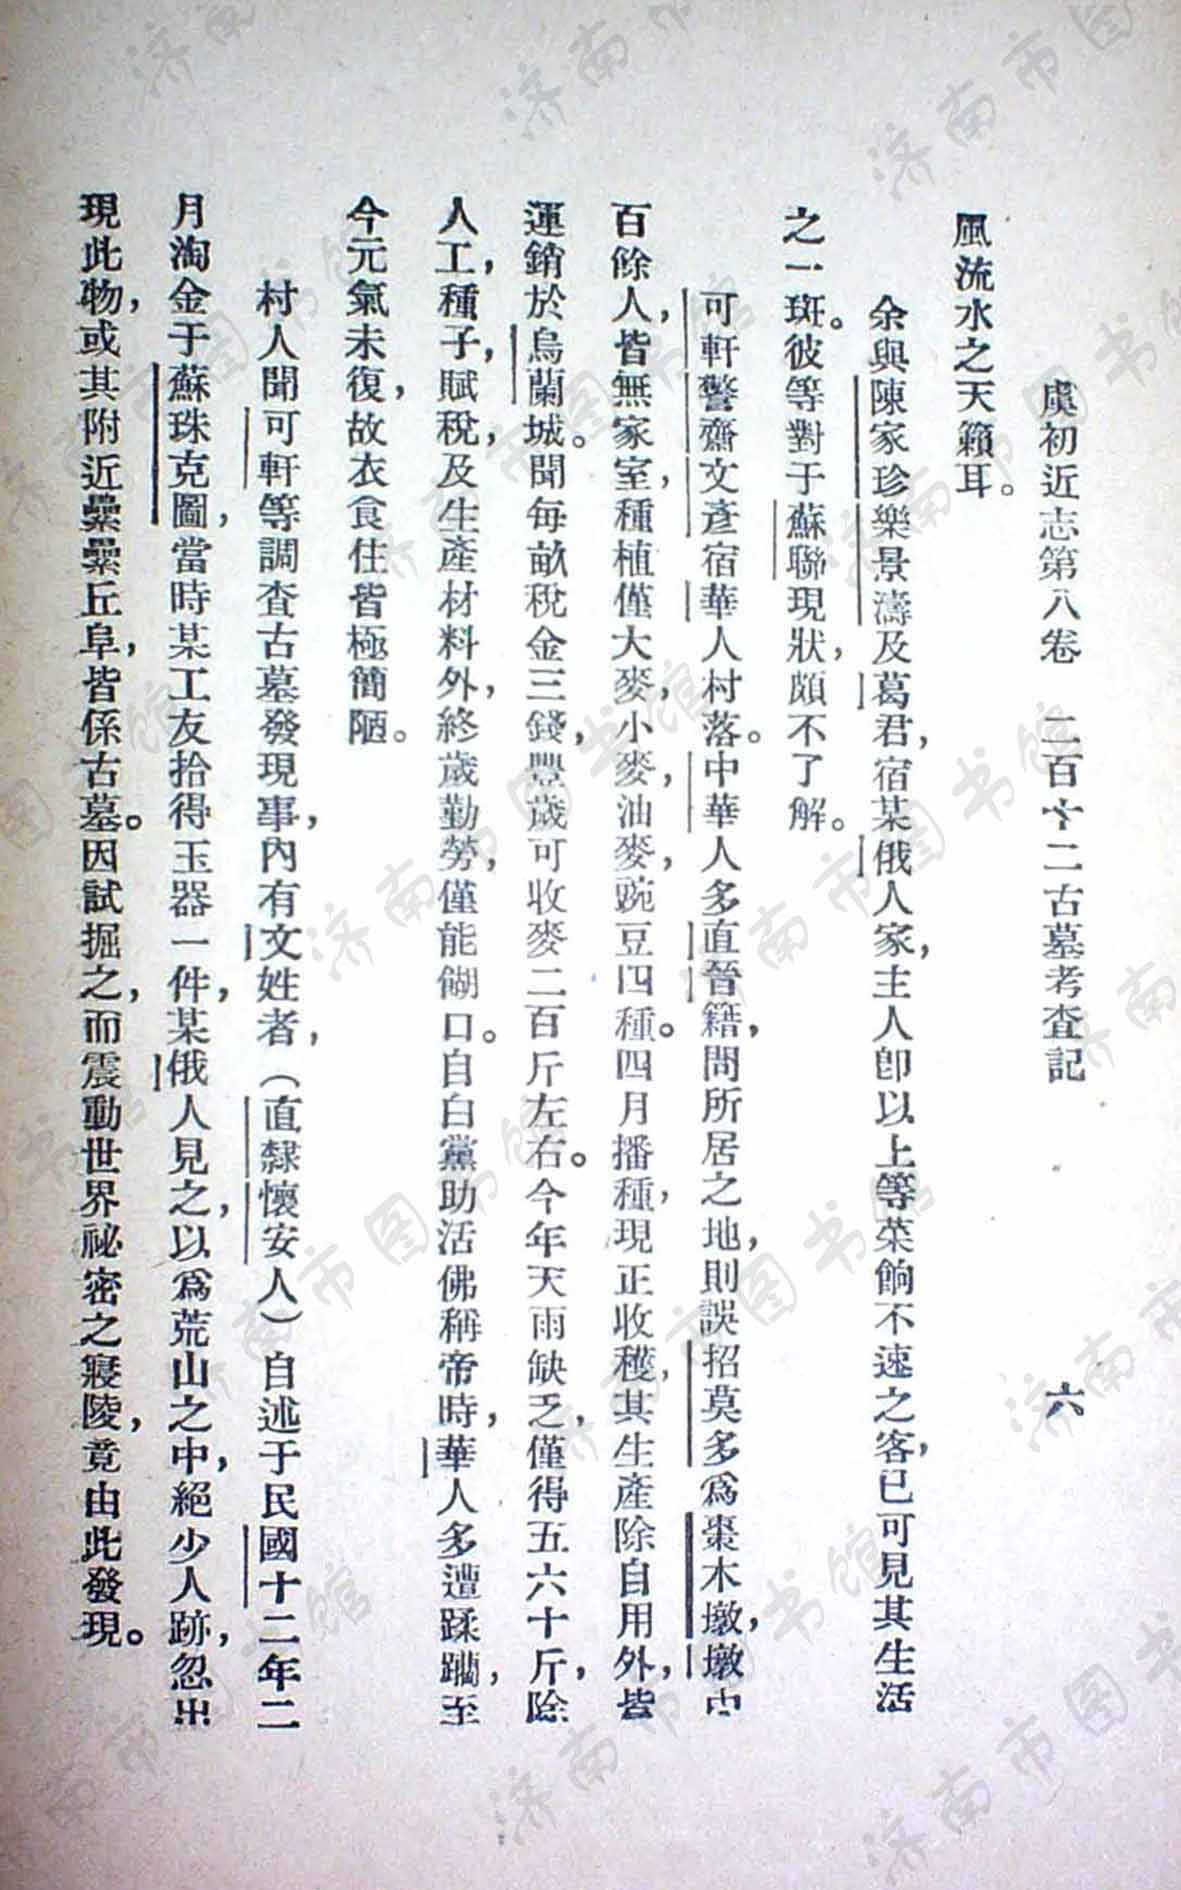 虞初近志第八卷　二百十二古墓考查記　六
風流水之天籟耳。
余與陳家珍樂景濤及葛君，宿某俄人家，主人卽以上等菜餉不速之客，已可見其生活
之一斑。彼等對于蘇聯現狀，頗不了解。
可軒警齋文彥宿華人村落。中華人多直晉籍，問所居之地，則誤招莫多爲棗木墩，墩中
百餘人，皆無家室，種植僅大麥，小麥，油麥，豌豆四種。四月播種，現正收穫，其生產除自用外，皆
運銷於烏蘭城。聞每畝稅金三錢，豐歲可收麥二百斤左右。今年天雨缺乏，僅得五六十斤，除
人工，種子，賦稅，及生產材料外，終歲勤勞，僅能餬口。自白黨助活佛稱帝時，華人多遭蹂躪，至
今元氣未復，故衣食住皆極簡陋。
村人聞可軒等調查古墓發現事，內有文姓者，（直隸懷安人）自述于民國十二年二
月淘金于蘇珠克圖，當時某工友拾得玉器一件，某俄人見之，以爲荒山之中，絕少人跡，忽出
現此物，或其附近纍纍丘阜，皆係古墓。因試掘之，而震動世界祕密之寢陵，竟由此發現。
濟南市图书馆